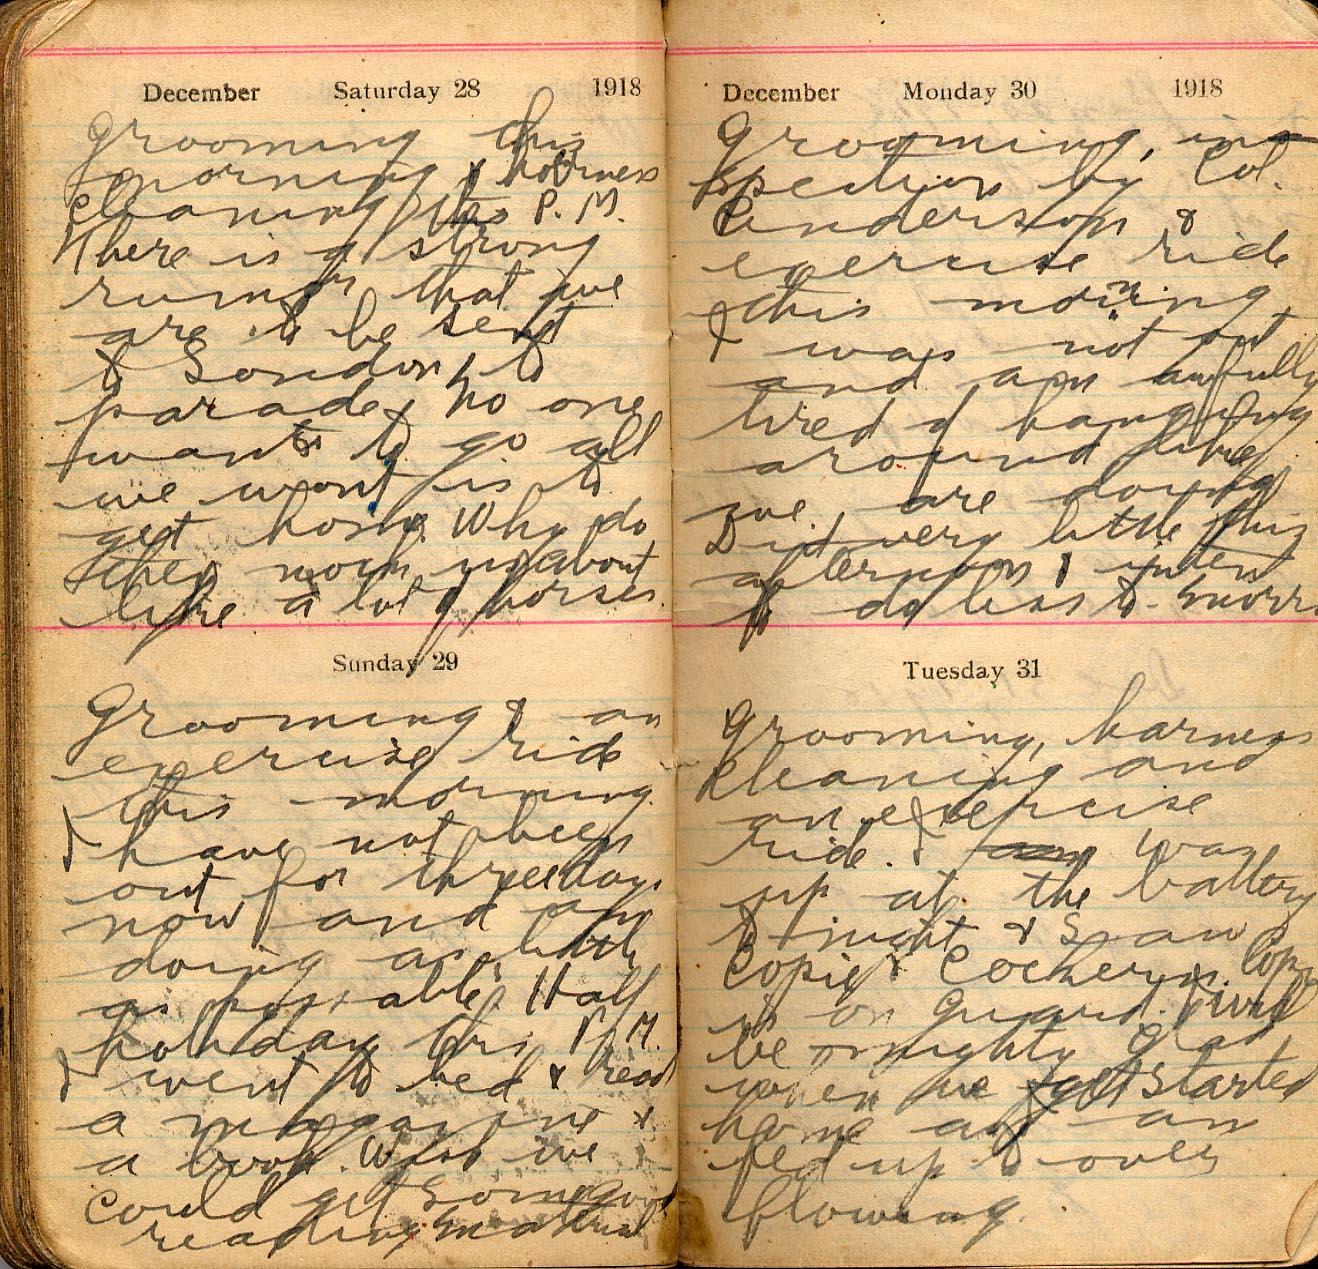 December Saturday 28 1918
Grooming this
morning & harness
cleaning this P.M.
There is a strong
rumor that we
are to be sent
to London to
parade, no one
wants to go all
we want is to
get home. Why do
they us about
like a lot of horses.
Sunday 29
Grooming & an
exercise ride
this morning.
I have not been
out for three days
now and am
doing as little
as possable. Half
holiday this P.M.
I went to bed & read
a magazine &
a book. Wish we
could get some good
reading material
December Monday 30 1918
Grooming, ins
pection by Col.
Anderson &
exercise ride
this morning
I was not out
and am awfully
tired of hanging
around like
we are doing
Did very little this
afternoon & intend
to do less to-morro
Tuesday 31
Grooming, harness
cleaning and
an exercise
ride. I was
up at the battery
to-night & saw
Copie & Cockeryn. Copie
is on guard. I will
be mighty glad
when we get started
home as I am
fed up to over
flowing.